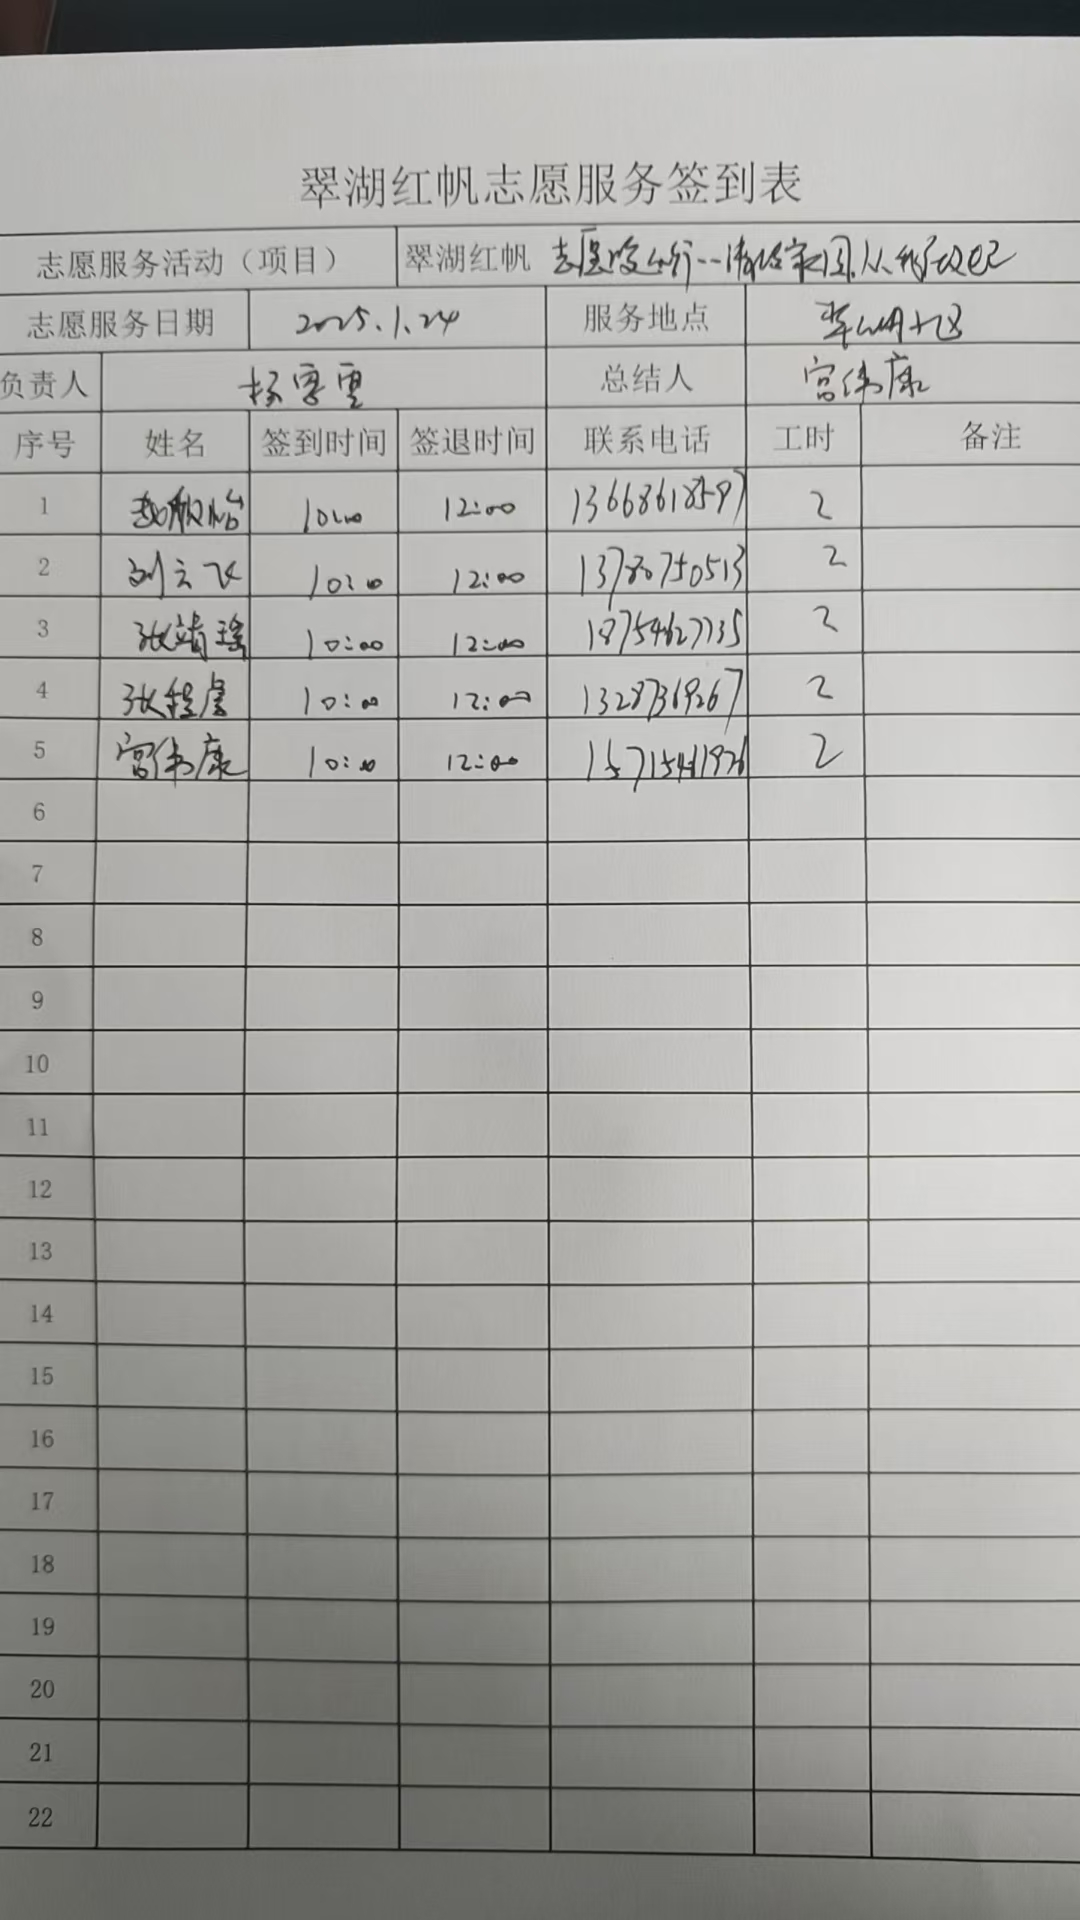 翠湖红帆志愿服务签到表
志愿服务活动（项目） 翠湖红帆 志愿 家园,从我
志愿服务日期 2025.1.24 服务地点
负责人 杨雪 总结人 宫伟康
序号 姓名 签到时间 签退时间 联系电话 工时 备注
1 赵欣怡 10:00 12:00 13668618597 2
2 刘云飞 10:00 12:00 13780750513 2
3 张靖瑶 10:00 12:00 18754627735 2
4 张程虔 10:00 12:00 13287369267 2
5 宫伟康 10:00 12:00 2
6
7
8
9
10
11
12
13
14
15
16
17
18
19
20
21
22